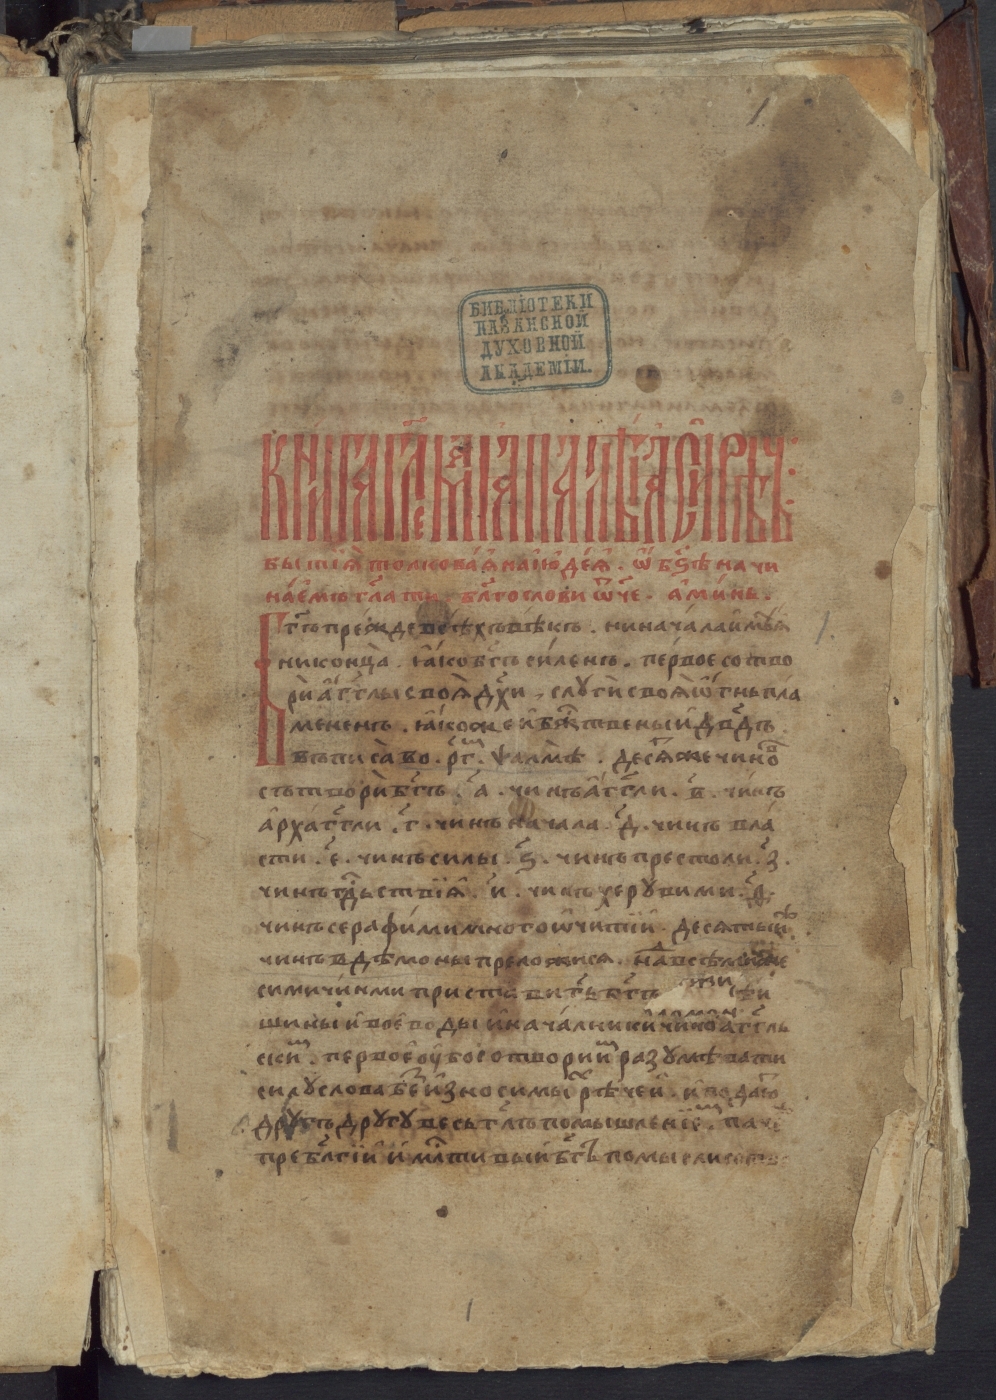 БИБЛІОТЕКИ
КАЗАНСКОЙ
ДУХОВНОЙ
АКАДЕМІИ.
КНИГА ГЛЕМАІА ПАЛѢА СИРѢЧЬ:
бытїѧ толковаѧ на іюдеѧ. ѡ бз҃ѣ начи
наемъ гл҃ати. блг҃ослови ѿч҃е. аминь.
Бг҃ъ прежде всѣхъ вѣкъ. ни начала имыи
ни конца. ꙗко бг҃ъ силенъ. первое сотво
ри аг҃глы своѧ дх҃и, слуги своѧ ѡгнь пла
мененъ. ꙗкоже и бжт҃веныи дв҃дъ.
въписа во. рг҃. ѱалмѣ. десѧт же чинов
сътвори бг҃ъ. а҃. чинъ аг҃гли. в҃. чинъ
архаг҃гли. г҃. чинъ начала. д҃. чинъ вла
сти. е҃. чинъ силы. ѕ҃. чинъ престоли. з҃.
чинъ гд҃ьствїѧ. и҃. чинъ херувими. ѳ҃.
чинъ серафими многоѡчитїи. десѧтыи
чинъ в дѣмоны преложисѧ. над всѣми же
сими чинми пристави бг҃ъ
шины и воеводы и началники чином аг҃гль
ски. первое оубо сотвори и разумѣвати
силу слова бж҃е износимых рѣчеи. и подают
другъ другу весь гл҃ъ помышленїе. паче
преблг҃їи и млт҃ивыи бг҃ъ помысли
1
1